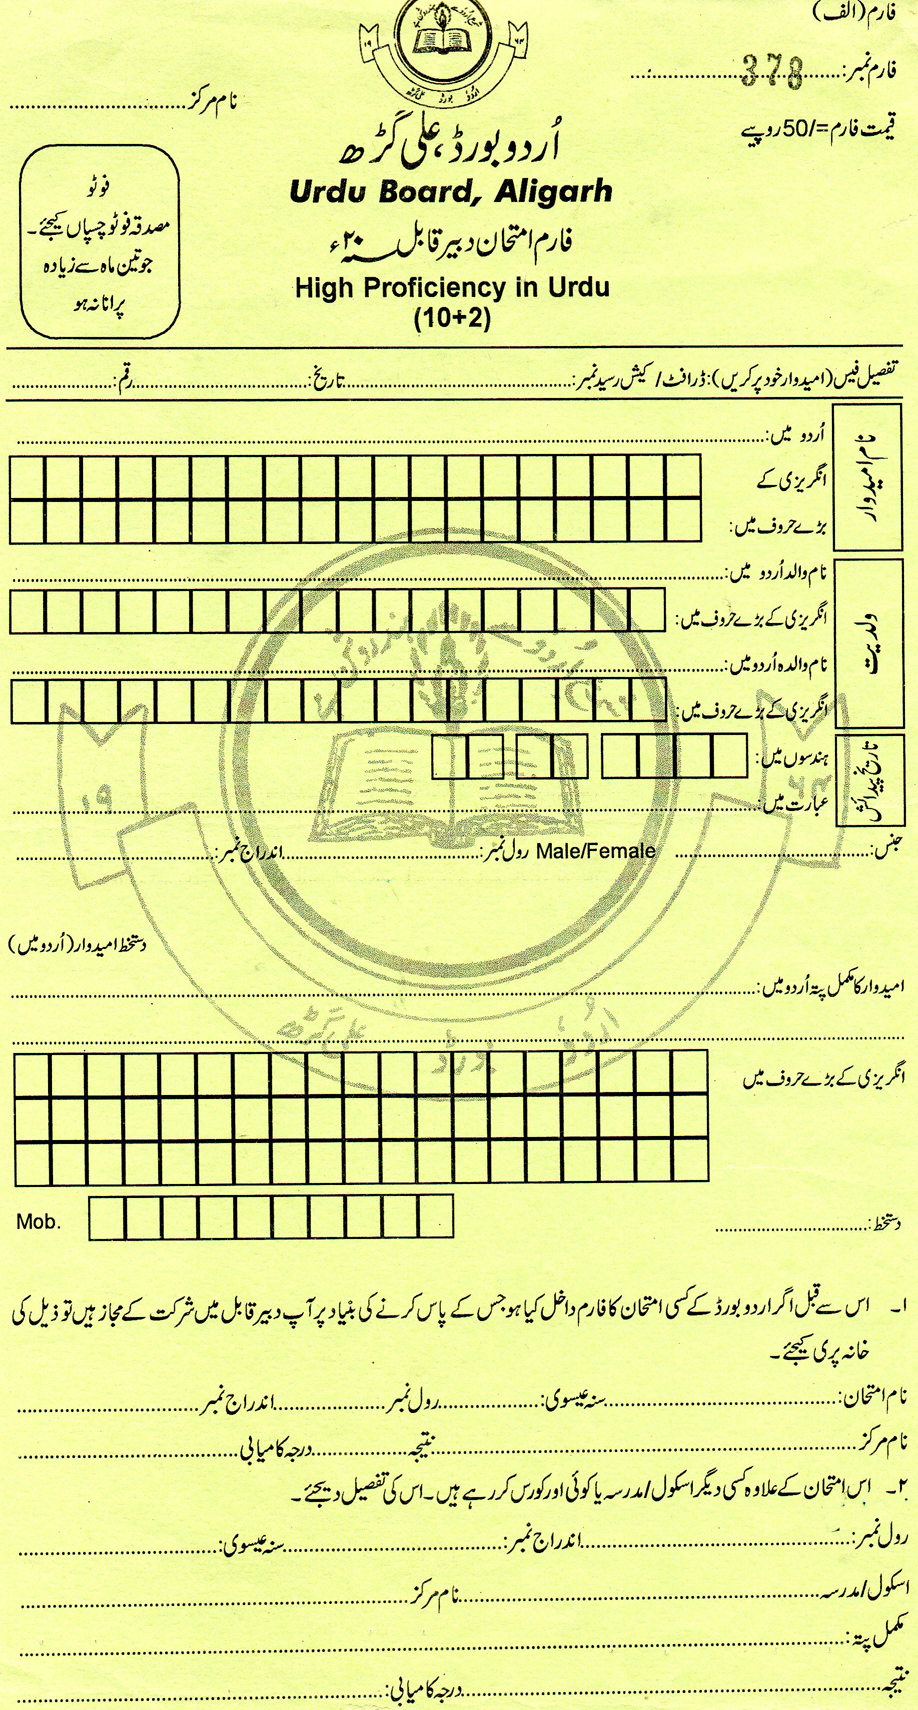 فارم (الف)
فارم نمبر: 378
نام مرکز
قیمت فارم =/50 روپیے
۱۹ ۶۳
اُردو بورڈ علی گڑھ
اُردو بورڈ، علی گڑھ
Urdu Board, Aligarh
فارم امتحان دبیر قابل سنہ ۲۰ء
High Proficiency in Urdu
(10+2)
فوٹو
مصدقہ فوٹو چسپاں کیجئے۔
جو تین ماہ سے زیادہ
پرانا نہ ہو
تفصیل فیس (امیدوار خود پر کریں): ڈرافٹ / کیش رسید نمبر: تاریخ: رقم:
نام امیدوار
اُردو میں:
انگریزی کے
بڑے حروف میں:
ولدیت
نام والد اُردو میں:
انگریزی کے بڑے حروف میں:
نام والدہ اُردو میں:
انگریزی کے بڑے حروف میں:
تاریخ پیدائش
ہندسوں میں:
عبارت میں:
جنس: Male/Female رول نمبر: اندراج نمبر:
دستخط امیدوار (اُردو میں)
امیدوار کا مکمل پتہ اُردو میں:
انگریزی کے بڑے حروف میں
Mob.
دستخط:
۱۔ اس سے قبل اگر اردو بورڈ کے کسی امتحان کا فارم داخل کیا ہو جس کے پاس کرنے کی بنیاد پر آپ دبیر قابل میں شرکت کے مجاز ہیں تو ذیل کی
خانہ پری کیجئے۔
نام امتحان: سنہ عیسوی: رول نمبر اندراج نمبر
نام مرکز نتیجہ درجہ کامیابی
۲۔ اس امتحان کے علاوہ کسی دیگر اسکول/مدرسہ یا کوئی اور کورس کر رہے ہیں۔ اس کی تفصیل دیجئے۔
رول نمبر: اندراج نمبر: سنہ عیسوی:
اسکول/مدرسہ نام مرکز
مکمل پتہ:
نتیجہ درجہ کامیابی: